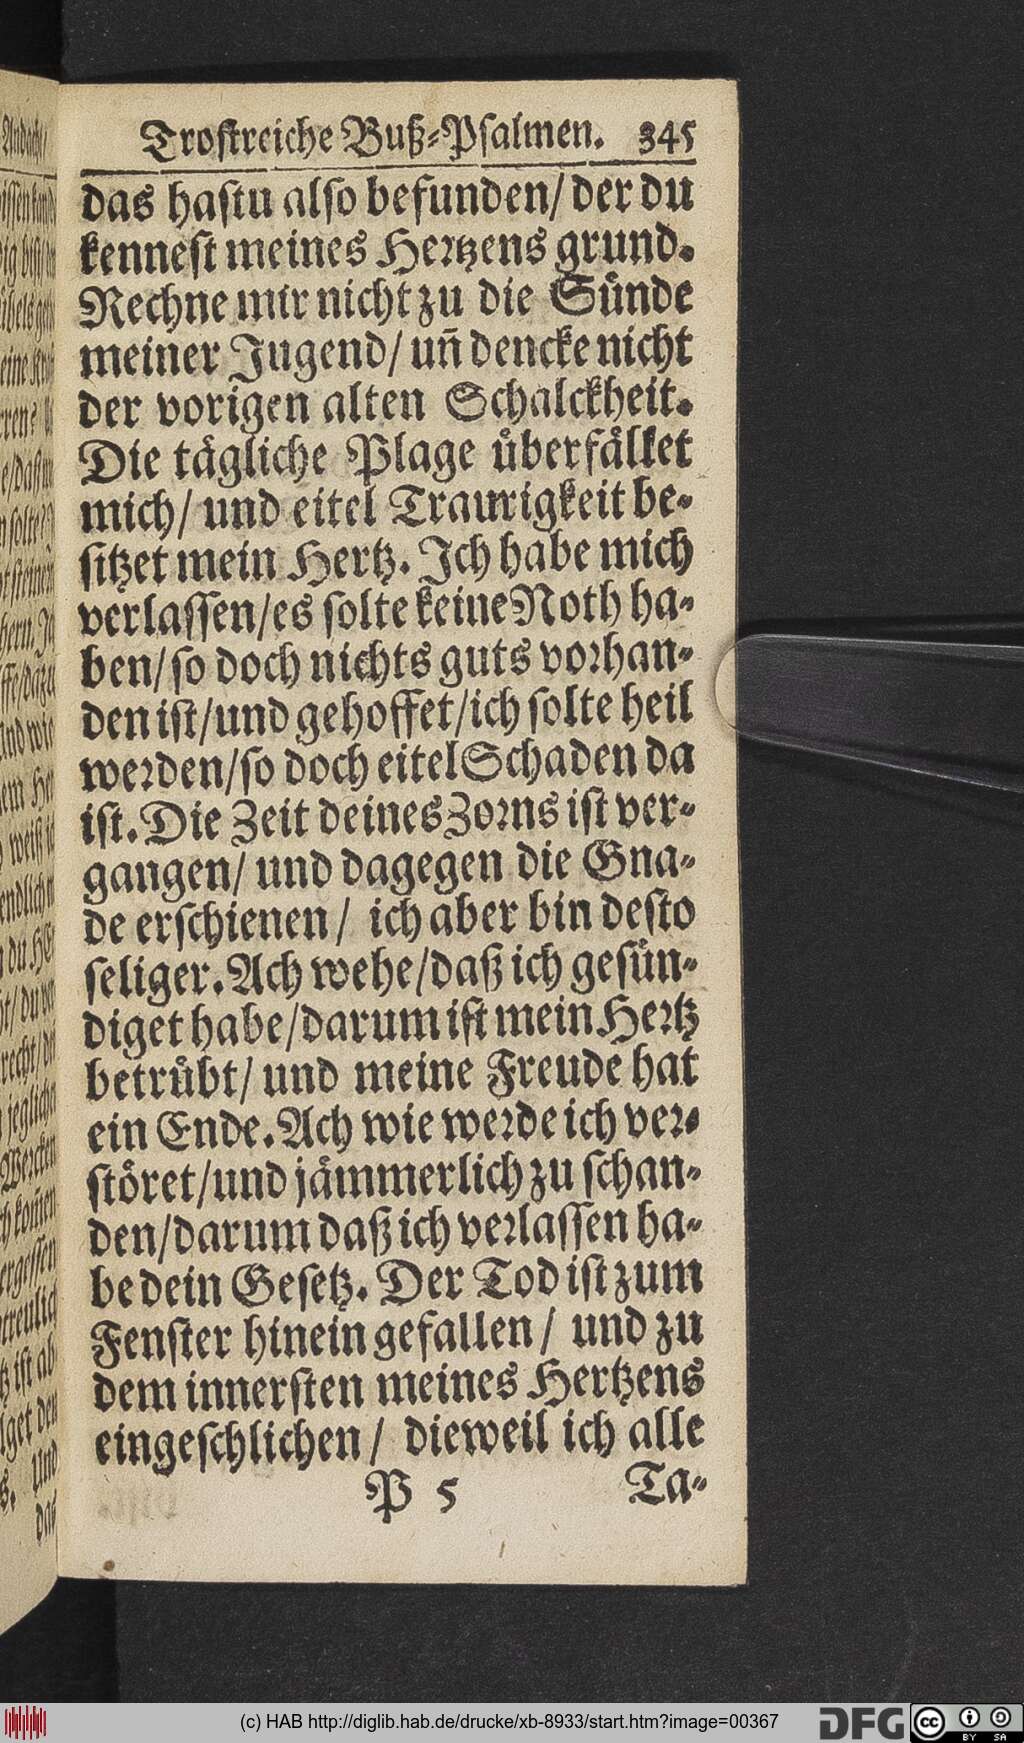 Trostreiche Buß-Psalmen. 345
das hastu also befunden/ der du
kennest meines Hertzens grund.
Rechne mir nicht zu die Sünde
meiner Jugend/ uñ dencke nicht
der vorigen alten Schalckheit.
Die tägliche Plage überfälket
mich/ und eitel Traurigkeit be-
sitzet mein Hertz. Ich habe mich
verlassen/es solte keine Noth ha-
ben/ so doch nichts guts vorhan-
den ist/und gehoffet/ich solte heil
werden/so doch eitel Schaden da
ist. Die Zeit deines Zorns ist ver-
gangen/ und dagegen die Gna-
de erschienen/ ich aber bin desto
seliger. Ach wehe/daß ich gesün-
diget habe/darum ist mein Hertz
betrübt/ und meine Freude hat
ein Ende. Ach wie werde ich ver-
störet/und jämmerlich zu schan-
den/darum daß ich verlassen ha-
be dein Gesetz. Der Tod ist zum
Fenster hinein gefallen/ und zu
dem innersten meines Hertzens
eingeschlichen/ dieweil ich alle
P 5 Ta-
(c) HAB http://diglib.hab.de/drucke/xb-8933/start.htm?image=00367
DFG
BY SA